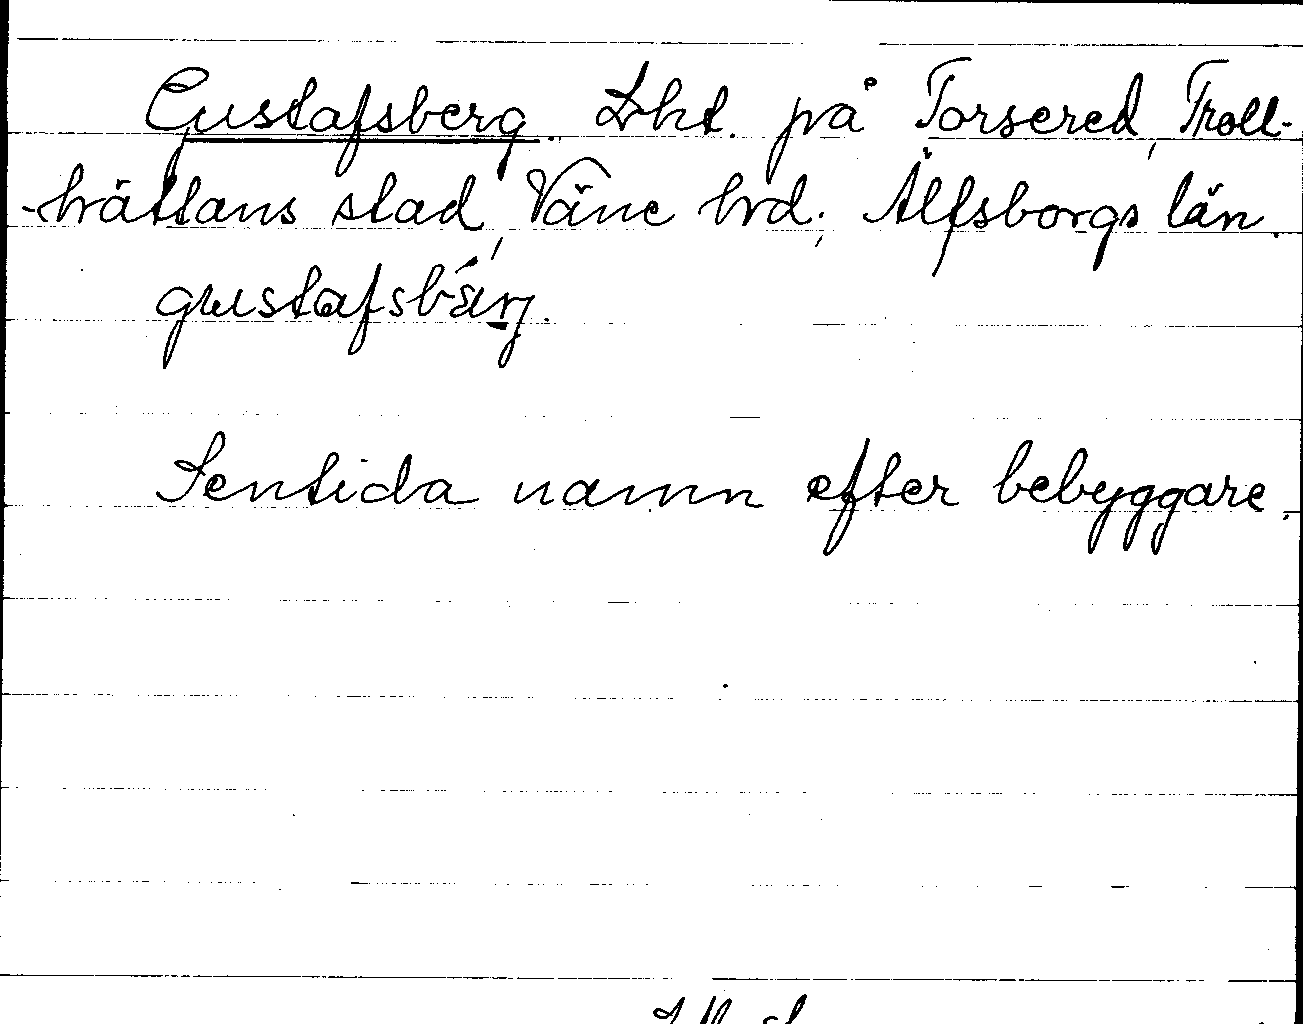 Gustafsberg. Lht. på Torsered, Troll-
-hättans stad, Väne hrd; Älfsborgs län.
gustafsbärj.
Sentida namn efter bebyggare.